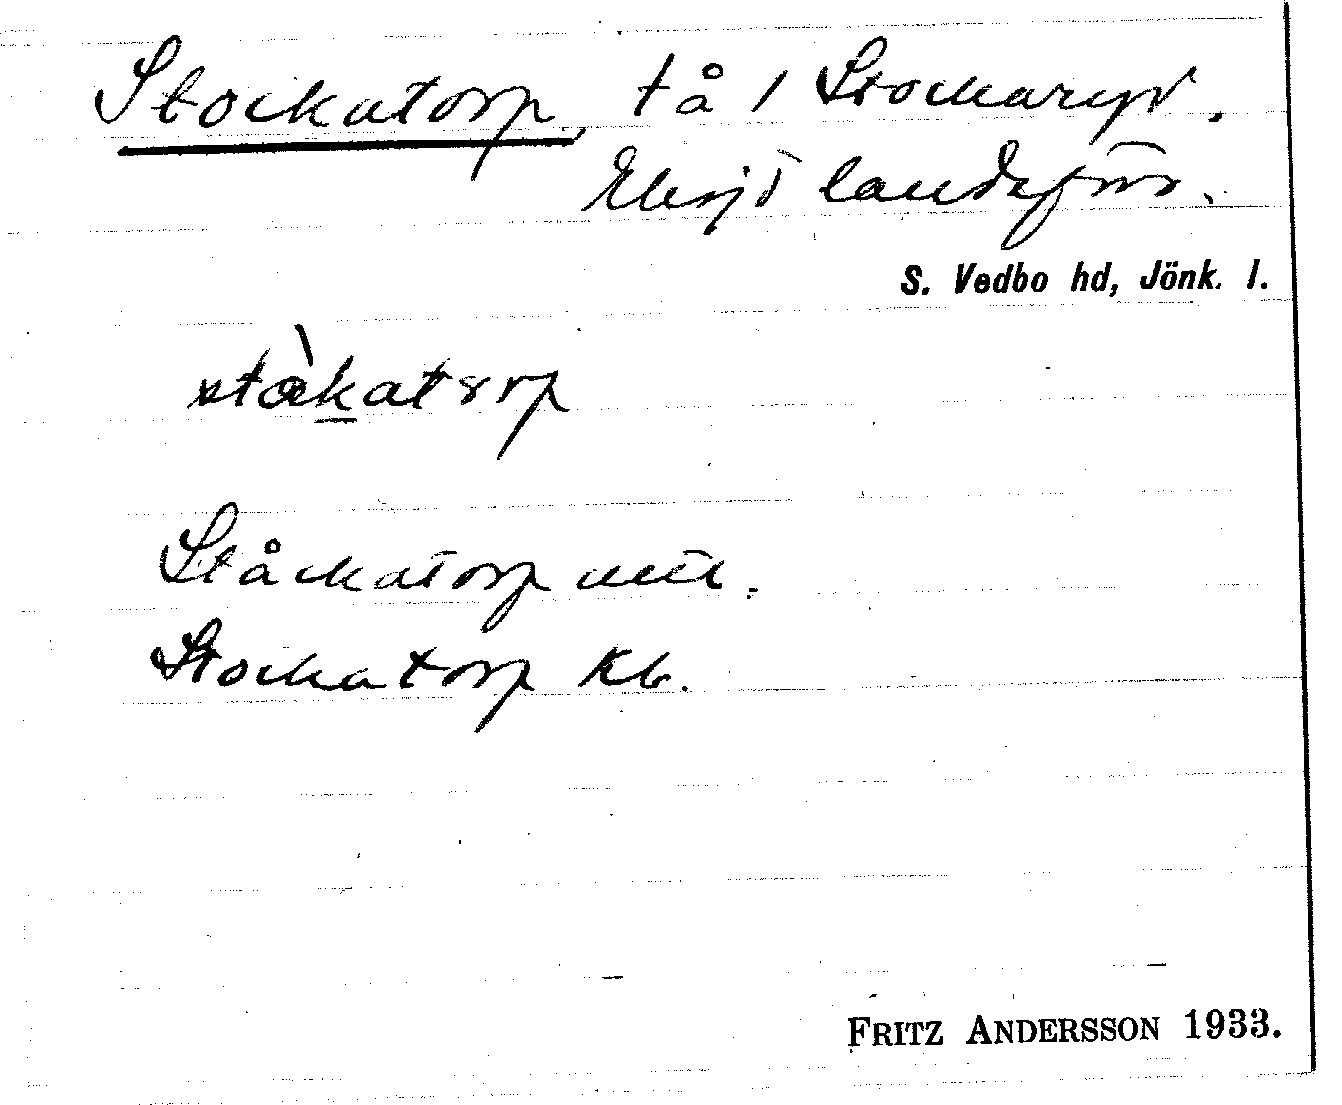 Stockatorp, tå / Stockaryd.
Eksjö landsförs.
S. Vedbo hd, Jönk. l.
Ståckatorp
Stockatorp Kb.
FRITZ ANDERSSON 1933.